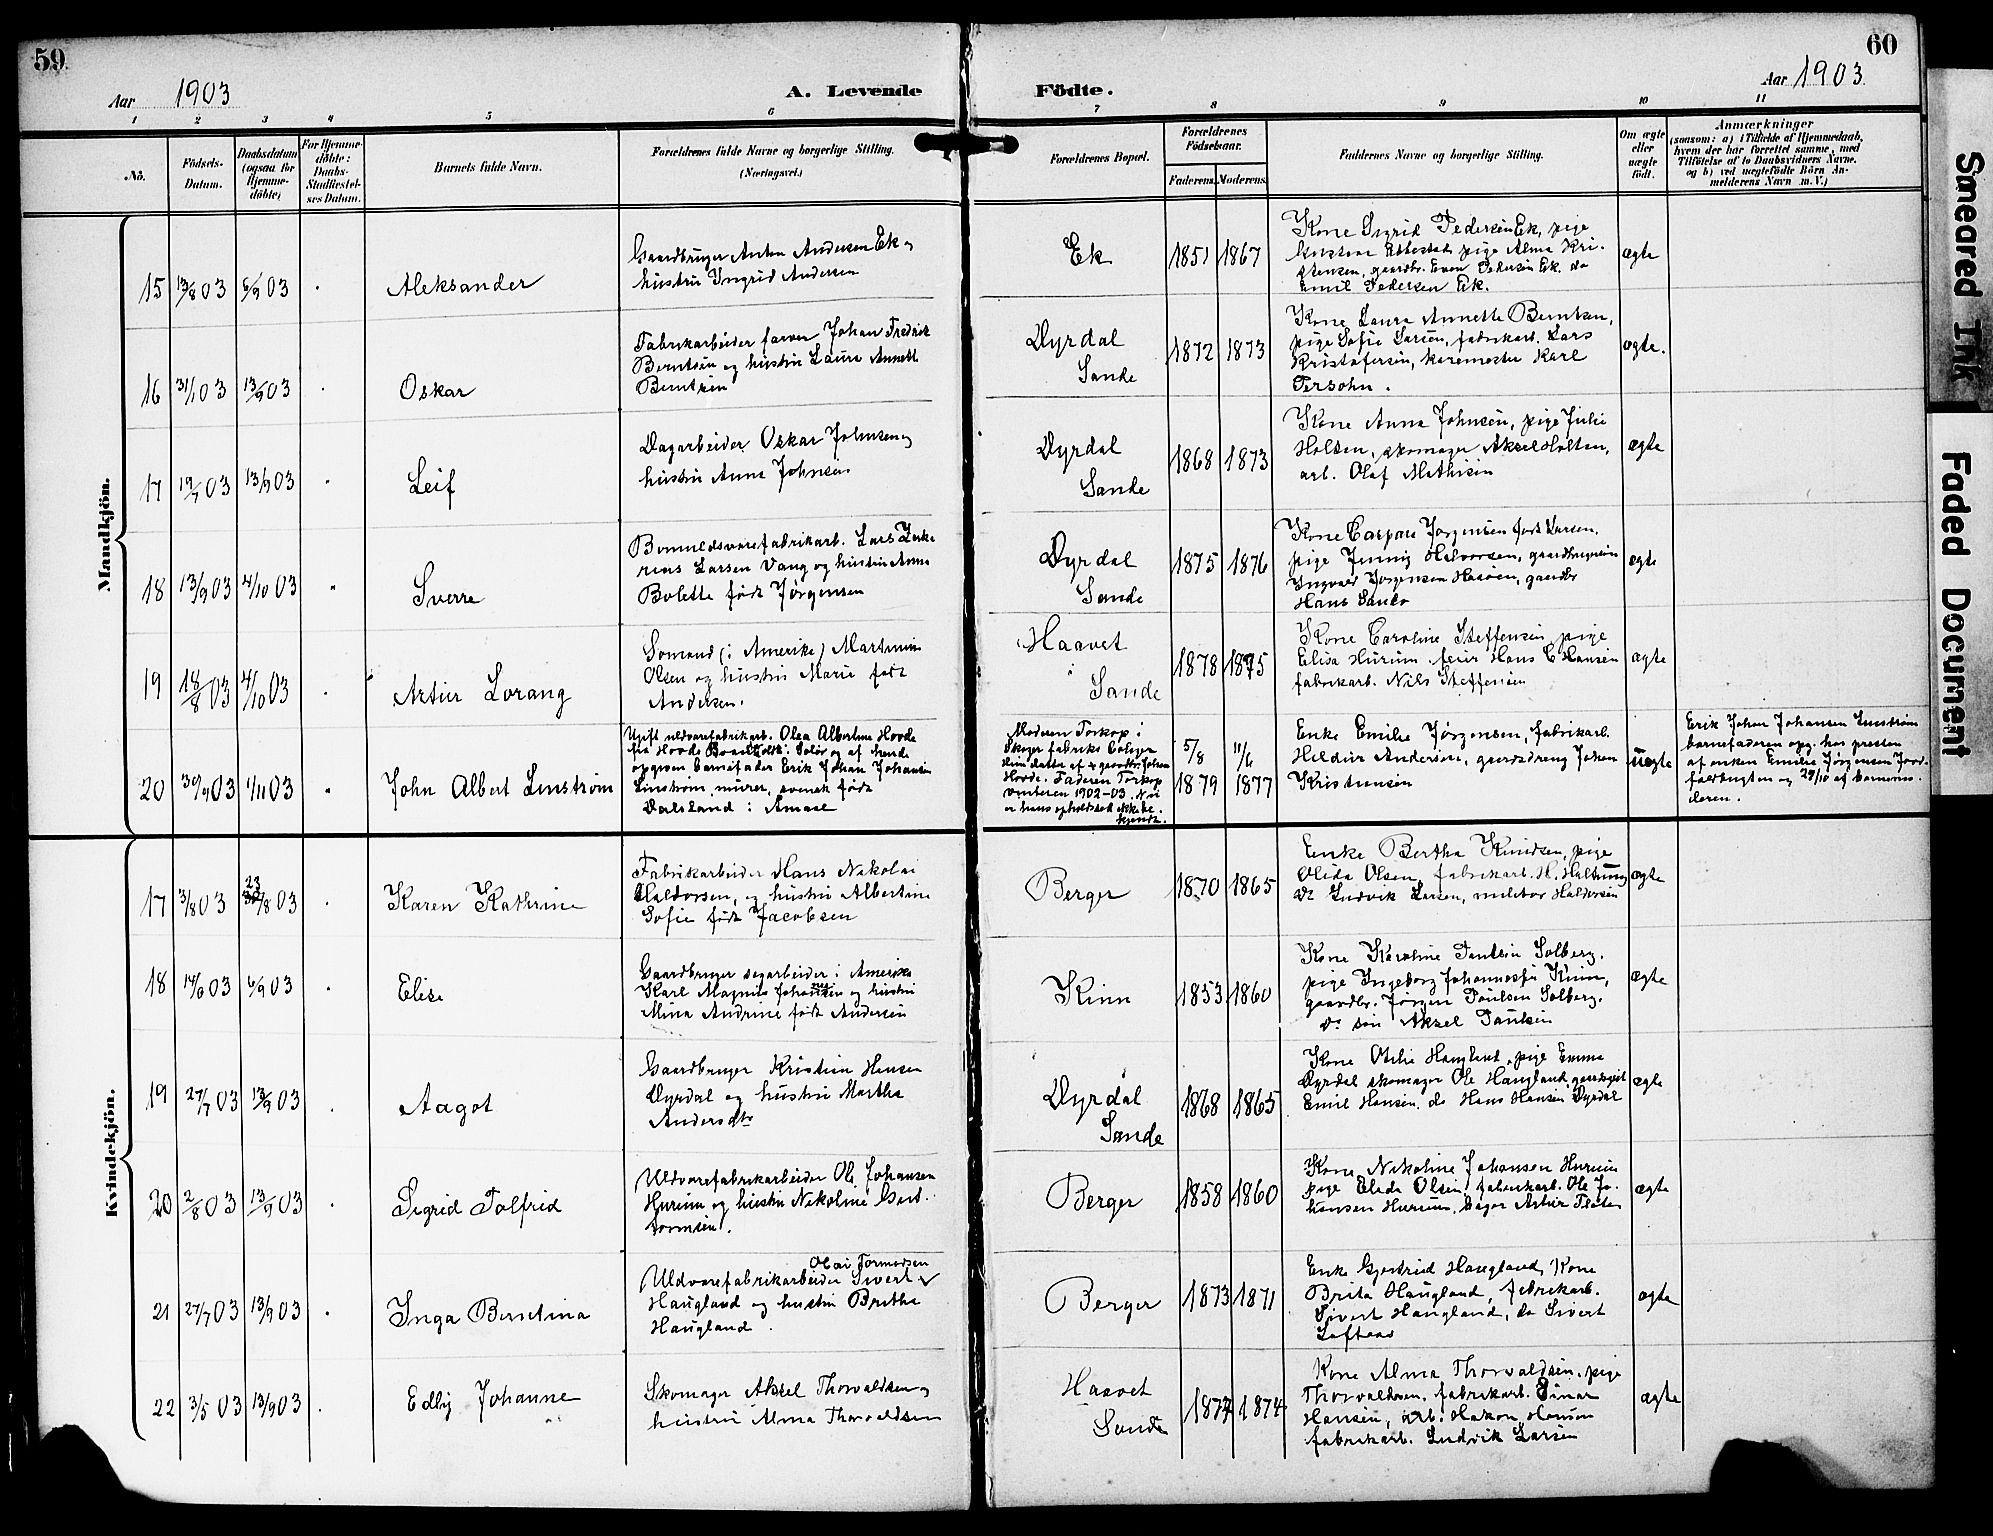 59
60
Aar 1903
A. Levende
Födte.
Aar 1903
1 2 3 4 5 6 7 8 9 10 11
No.
Födsels-Datum.
Daabsdatum (ogsaa for Hjemme-döbte)
For Hjemme-döbte: Daabs-Stadfæstel-ses Datum.
Barnets fulde Navn.
Forældrenes fulde Navne og borgerlige Stilling.
(Næringsvei.)
Forældrenes Bopæl.
Forældrenes Födselsaar.
Faderens. Moderens.
Faddernes Navne og borgerlige Stilling.
Om ægte eller uægte födt.
Anmærkninger
(saasom: a) i Tilfælde af Hjemmedaab,
hvem der har forrettet samme, med
Tilföielse af to Daabsvidners Navne.
og b) ved uægtefödte Börn An-
melderens Navn m.V.)
Mandkjön.
15 13/8 03 6/9 03 Aleksander
Gaardbruger Anton Andersen Ek og
hustru Ingrid Andersen
Ek 1851 1867
Kone Sigrid Pedersen Ek, pige
pige Alma Kri-
stensen, gaardbr. Even Pedersen Ek. do
Emil Pedersen Ek.
ægte
16 31/1 03 13/9 03 Oskar
Fabrikarbeider farver Johan Fredrik
Berntsen og hustru Laura Annette
Berntsen
Dyrdal
Sande
1872 1873
Kone Laura Annette Berntsen,
pige Sofie Larsen, fabrikarb. Lars
Kristofersen, karemester Karl
Persohn.
ægte.
17 19/7 03 13/9 03 Leif
Dagarbeider Oskar Johnsen og
hustru Anna Johnsen
Dyrdal
Sande
1868 1873
Kone Anna Johnsen, pige Julie
Holten, skomager Aksel Holten,
arb. Olaf Mathisen
ægte
18 13/9 03 4/10 03 Sverre
Bomuldsvarefabrikarb. Lars Zaka
rias Larsen Vang og hustru Anna
Bolette født Jørgensen
Dyrdal
Sande
1875 1876
Kone Caspara Jørgensen født Larsen.
pige Jenny Halvorsen, gaardbrugersøn
Ingvald Jørgensen Haaøen, gaardbr
Hans Sando
ægte
19 18/8 03 4/10 03 Artur Lorang
Sømand (i Amerika) Martinius
Olsen og hustru Marie født
Andersen.
Haavet
i
Sande
1878 1875
Kone Caroline Steffensen, pige
Elisa Hurum. feier Hans C Hansen
fabrikarb. Nils Steffensen
ægte
20 30/9 03 1/11 03 John Albert Linstrøm
Ugift uldvarefabrikarb. Olea Albertine Hovde
fra Hovde i Solør og af hende
opgiven barnefader Erik Johan Johansen
Linstrøm, murer, svensk født
Dalsland i Amaal
Moderen Torkop i
Skoger fabriks
datter af gaardbr. Johan
Hovde. Faderen Torkop
vinteren 1902-03. Nu
er hans opholdssted ikke be-
kjendt.
5/8 1879 11/6 1877
Enke Emilie Jørgensen, fabrikarb.
Heldur Andersen, gaardsdreng Johan
Kristensen
uægte
Erik Johan Johansen Linstrøm
barnefaderen opg. hos presten
af enken Emilie Jørgensen
og 29/10 af barnemo-
deren.
Kvindekjön.
17 3/8 03 23/8 03 Karen Kathrine
Fabrikarbeider Hans Nikolai
Haldorsen, og hustru Albertine
Sofie født Jacobsen
Berger 1870 1865
Enke Bertha Knudsen, pige
Olida Olsen, fabrikarb. H. Haltung
do Ludvik Larsen, militær Haldorsen
ægte
18 14/6 03 6/9 03 Elise
Gaardbruger dagarbeider i Amerika
Karl Magnus Johansen og hustru
Alma Andrine født Andersen
Kinn 1853 1860
Kone Karoline Paulsen Solberg.
pige Ingeborg Johannesen Kinn,
gaardbr. Jørgen Paulsen Solberg.
do søn Aksel Paulsen
ægte
19 27/7 03 13/9 03 Aagot
Gaardbruger Kristian Hansen
Dyrdal og hustru Martha
Andersdtr
Dyrdal
Sande
1868 1865
Kone Otilie Haugland, pige Emma
Dyrdal skomager Ole Haugland,
Emil Hansen, do Hans Hansen Dyrdal
ægte
20 2/8 03 13/9 03 Sigrid Solfrid
Uldvarefabrikarbeider Ole Johansen
Hurum og hustru Nikoline Gert-
Berger 1858 1860
Kone Nikoline Johansen Hurum
pige Eleda Olsen, fabrikarb. Ole Jo-
hansen Hurum, bager Artur Fløten
ægte
21 27/7 03 13/9 03 Inga Berntina
Olai Tormodsen
Uldvarefabrikarbeider Sivert
Haugland og hustru Britha
Haugland.
Berger 1873 1871
Enke Gjertrud Haugland, Kone
Brita Haugland, fabrikarb.
Sivert Haugland, do Sivert
Loftaas
ægte
22 3/5 03 13/9 03 Edly Johanne
Skomager Aksel Thorvaldsen og
hustru Alma Thorvaldsen
Haavet
Sande
1877 1874
Kone Alma Thorvaldsen, pige
Thorvaldsen, fabrikarb. Einar
Hansen, arb. Hakon Hansen
fabrikarb. Ludvik Larsen
ægte
Smeared Ink
Faded Document